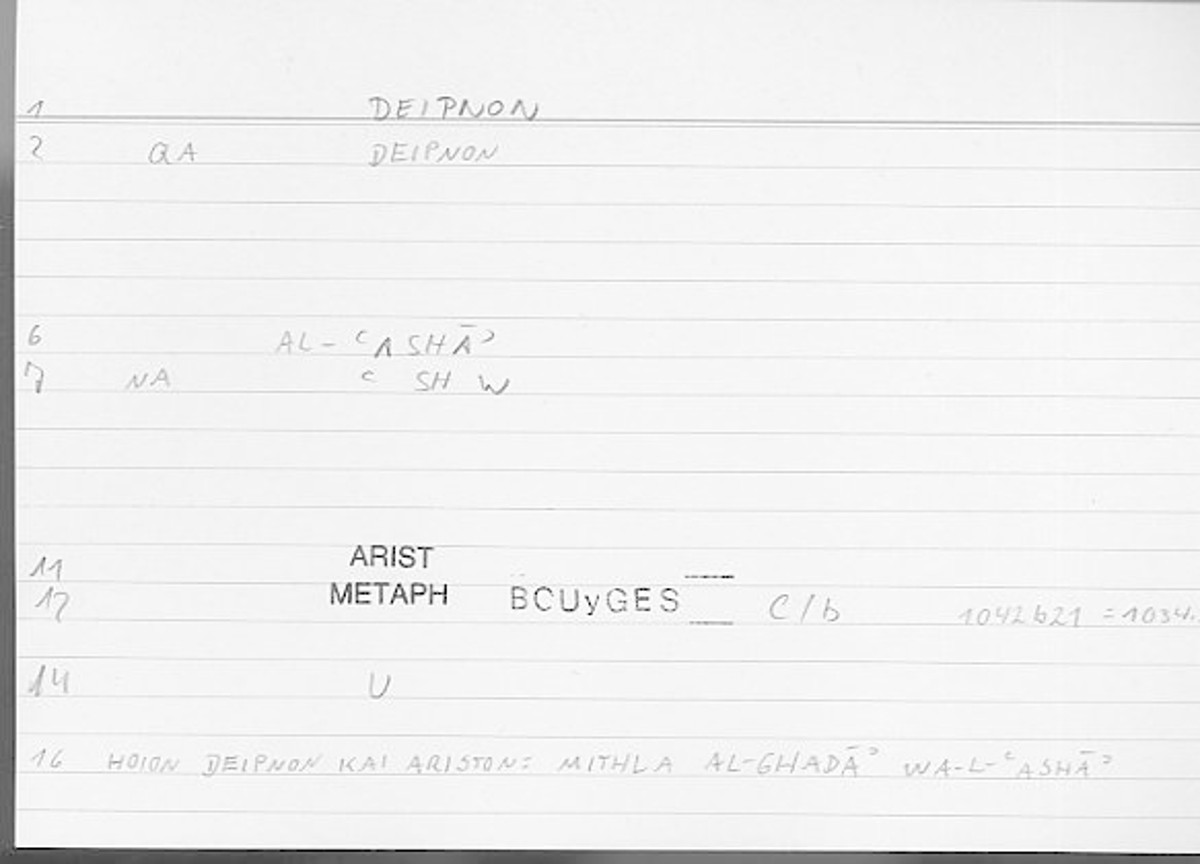 1 DEIPNON
2 QA DEIPNON
6 AL-ʿASHĀʾ
7 NA ʿ SH W
11 ARIST
12 METAPH BOUyGES C/b 1042b21 = 1034.
14 U
16 HOION DEIPNON KAI ARISTON: MITHLA AL-GHADĀʾ WA-L-ʿASHĀʾ